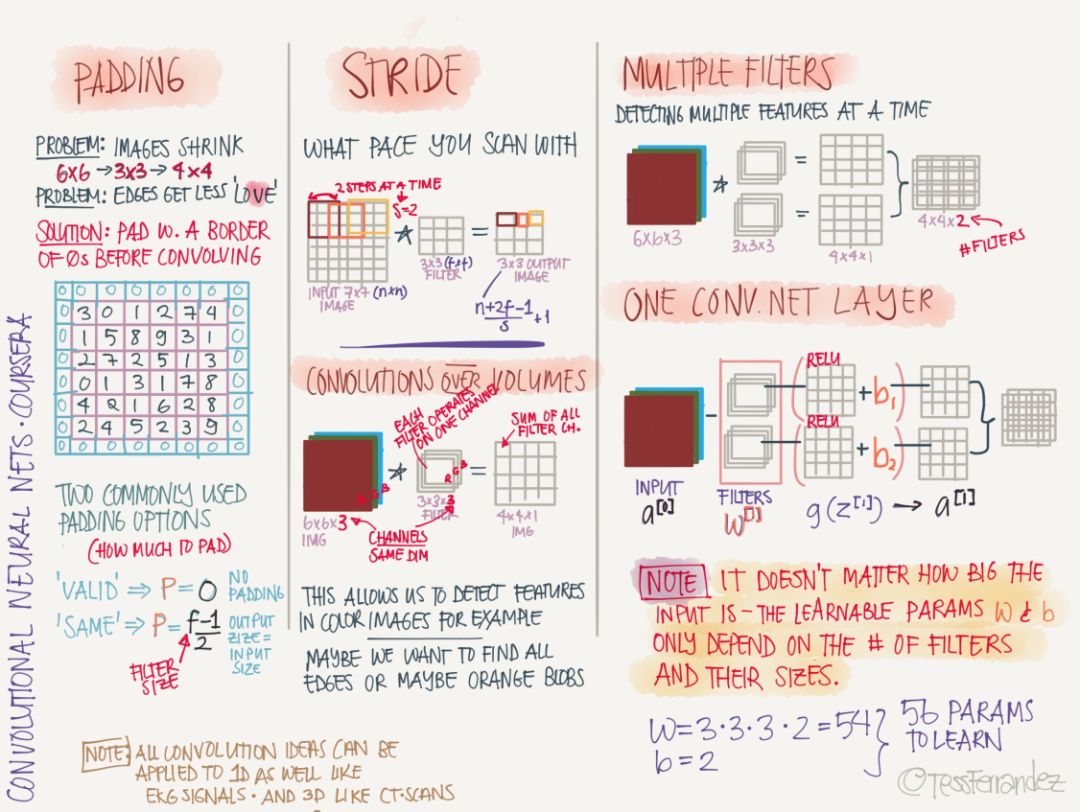 CONVOLUTIONAL NEURAL NETS · COURSERA
PADDING
PROBLEM: IMAGES SHRINK
6x6 → 3x3 → 4x4
PROBLEM: EDGES GET LESS 'LOVE'
SOLUTION: PAD W. A BORDER
OF 0s BEFORE CONVOLVING
0 0 0 0 0 0 0 0
0 3 0 1 2 7 4 0
0 1 5 8 9 3 1 0
0 2 7 2 5 1 3 0
0 0 1 3 1 7 8 0
0 4 2 1 6 2 8 0
0 2 4 5 2 3 9 0
0 0 0 0 0 0 0 0
TWO COMMONLY USED
PADDING OPTIONS
(HOW MUCH TO PAD)
'VALID' ⇒ P = 0 NO
PADDING
'SAME' ⇒ P = f-1
2
OUTPUT
SIZE =
INPUT
SIZE
FILTER
SIZE
NOTE: ALL CONVOLUTION IDEAS CAN BE
APPLIED TO 1D AS WELL LIKE
EKG SIGNALS · AND 3D LIKE CT-SCANS
STRIDE
WHAT PACE YOU SCAN WITH
2 STEPS AT A TIME
S=2
* =
INPUT 7x7 (nxn)
IMAGE
3x3 (fxf)
FILTER
3x3 OUTPUT
IMAGE
n+2f-1
s
+1
CONVOLUTIONS OVER VOLUMES
EACH
FILTER OPERATES
ON ONE CHANNEL
SUM OF ALL
FILTER CH.
R G B
* =
R G B
6x6x3
IMG
3x3x3
FILTER
4x4x1
IMG
CHANNELS
SAME DIM
THIS ALLOWS US TO DETECT FEATURES
IN COLOR IMAGES FOR EXAMPLE
MAYBE WE WANT TO FIND ALL
EDGES OR MAYBE ORANGE BLOBS
MULTIPLE FILTERS
DETECTING MULTIPLE FEATURES AT A TIME
* =
=
6x6x3
3x3x3
4x4x1
4x4x2
#FILTERS
ONE CONV. NET LAYER
RELU
+ b1
RELU
+ b2
INPUT
a[0]
FILTERS
W[1]
g(z[1]) → a[1]
NOTE IT DOESN'T MATTER HOW BIG THE
INPUT IS - THE LEARNABLE PARAMS W & b
ONLY DEPEND ON THE # OF FILTERS
AND THEIR SIZES.
W = 3·3·3·2 = 54
b = 2
56 PARAMS
TO LEARN
©TessFerrandez